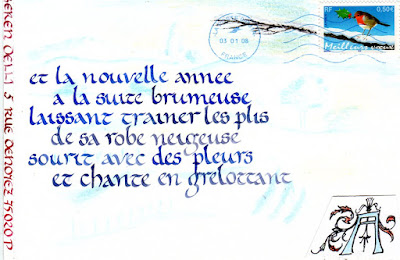 5 RUE DENOYEZ 75020 P
03 01 08
FRANCE
RF 0,50€
Meilleurs vœux
et la nouvelle annee
a la suite brumeuse
laissant trainer les plis
de sa robe neigeuse
sourit avec des pleurs
et chante en grelottant
A